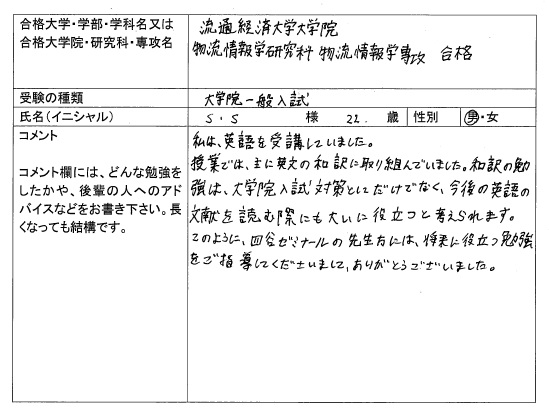 合格大学・学部・学科名又は
合格大学院・研究科・専攻名
流通経済大学大学院
物流情報学研究科 物流情報学専攻 合格
受験の種類
大学院一般入試
氏名(イニシャル)
S・S 様 22. 歳 性別 男・女
コメント
コメント欄には、どんな勉強を
したかや、後輩の人へのアド
バイスなどをお書き下さい。長
くなっても結構です。
私は、英語を受講していました。
授業では、主に英文の和訳に取り組んでいました。和訳の勉
強は、大学院入試対策としてだけでなく、今後の英語の
文献を読む際にも大いに役立つと考えられます。
このように、四谷ゼミナールの先生方には、将来に役立つ勉強
をご指導してくださいまして、ありがとうございました。